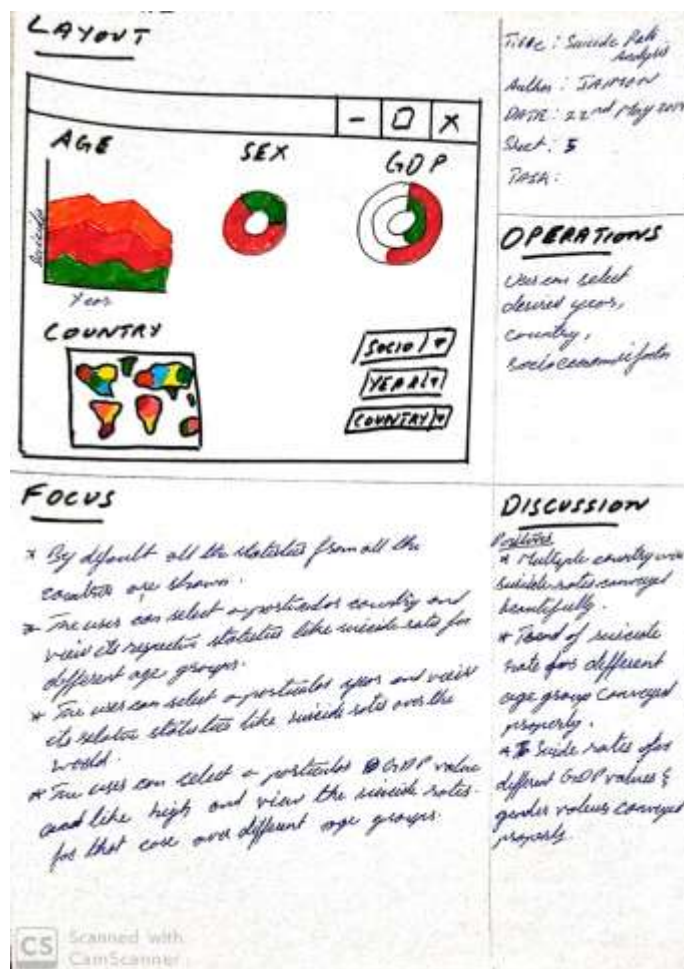 LAYOUT
AGE
SEX
GDP
Suicides
Year
COUNTRY
SOCIO
YEAR
COUNTRY
Title : Suicide Rate
Analysis
Author : JAIMAN
DATE : 22nd May
Sheet : 5
TASK :
OPERATIONS
User can select
desired years,
country,
socioeconomic
FOCUS
* By default all the statistics from all the
countries are shown.
* The user can select a particular country and
view its respective statistics like suicide rate for
different age groups.
* The user can select a particular year and view
its relative statistics like suicide rates over the
world.
* The user can select a particular GDP value
like high and view the suicide rates
for that case over different age groups.
DISCUSSION
Positives
* Multiple country wise
suicide rates conveyed
beautifully.
* Trend of suicide
rate for different
age group conveyed
properly.
* Suicide rates for
different GDP values &
gender values conveyed
properly.
CS Scanned with
CamScanner